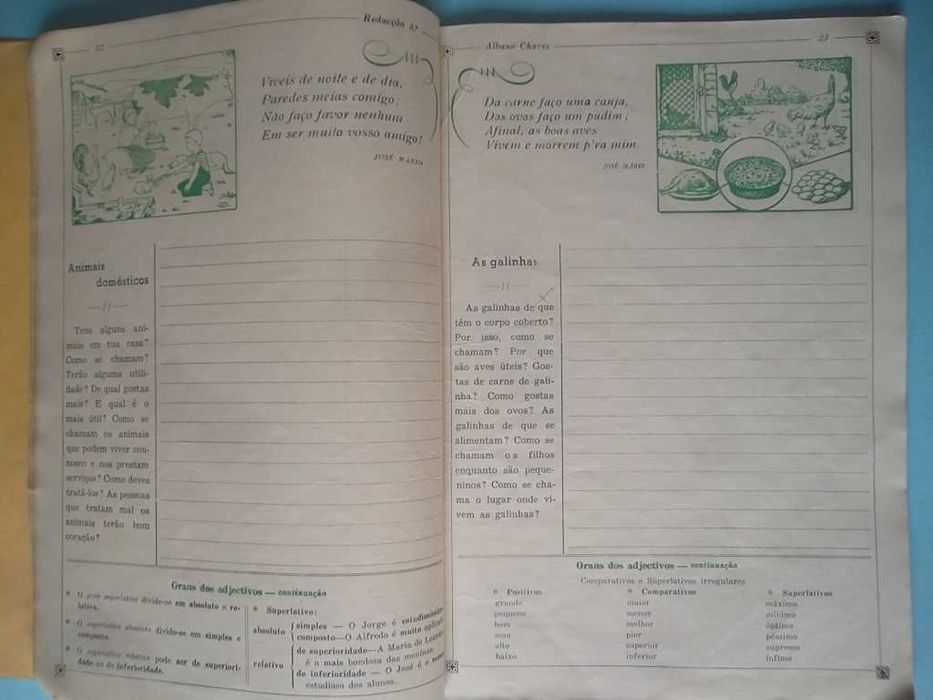 22
Redacção 3.ª
Viveis de noite e de dia,
Paredes meias comigo;
Não faço favor nenhum
Em ser muito vosso amigo!
JOSÉ MÁRIO
Animais
domésticos
Tens alguns ani-
mais em tua casa?
Como se chamam?
Terão alguma utili-
dade? De qual gostas
mais? E qual é o
mais útil? Como se
chamam os animais
que podem viver con-
nosco e nos prestam
serviços? Como deves
tratá-los? As pessoas
que tratam mal os
animais terão bom
coração?
Graus dos adjectivos — continuação
* O grau superlativo divide-se em absoluto e re-
lativo.
* O superlativo absoluto divide-se em simples e
composto.
* O superlativo relativo pode ser de superiori-
dade ou de inferioridade.
* Superlativo:
absoluto
simples — O Jorge é estudiosíssimo
composto — O Alfredo é muito aplicado
relativo
de superioridade — A Maria de Lourdes
é a mais bondosa das meninas.
de inferioridade — O José é o menos
estudioso dos alunos.
Albano Chaves
23
Da carne faço uma canja,
Dos ovos faço um pudim;
Afinal, as boas aves
Vivem e morrem p'ra mim.
JOSÉ MÁRIO
As galinhas
As galinhas de que
têm o corpo coberto?
Por isso, como se
chamam? Por que
são aves úteis? Gos-
tas de carne de gali-
nha? Como gostas
mais dos ovos? As
galinhas de que se
alimentam? Como se
chamam os filhos
enquanto são peque-
ninos? Como se cha-
ma o lugar onde vi-
vem as galinhas?
Graus dos adjectivos — continuação
Comparativos e Superlativos irregulares
* Positivos * Comparativos * Superlativos
grande maior máximo
pequeno menor mínimo
bom melhor óptimo
mau pior péssimo
alto superior supremo
baixo inferior ínfimo